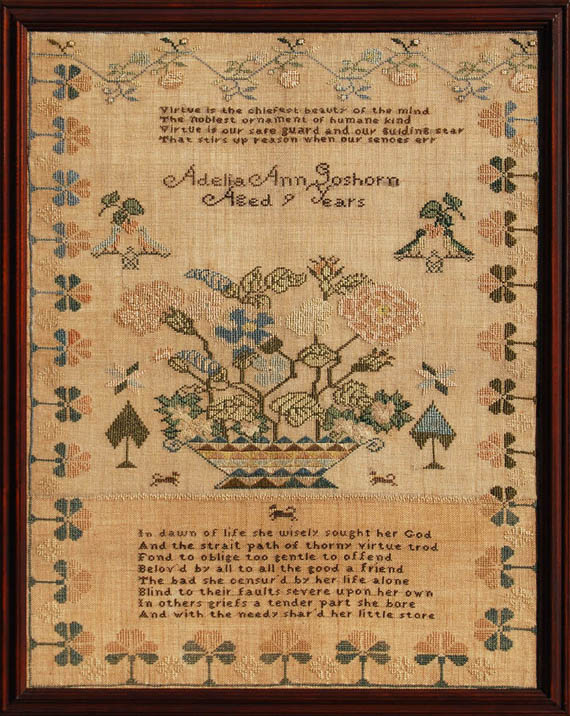 Virtue is the chiefest beauty of the mind
The noblest ornament of humane kind
Virtue is our safe guard and our guiding star
That stirs up reason when our sences err
Adelia Ann Goshorn
Aged 9 Years
In dawn of life she wisely sought her God
And the strait path of thorny virtue trod
Fond to oblige too gentle to offend
Belov'd by all to all the good a friend
The bad she censur'd by her life alone
Blind to their faults severe upon her own
In others griefs a tender part she bore
And with the needy shar'd her little store